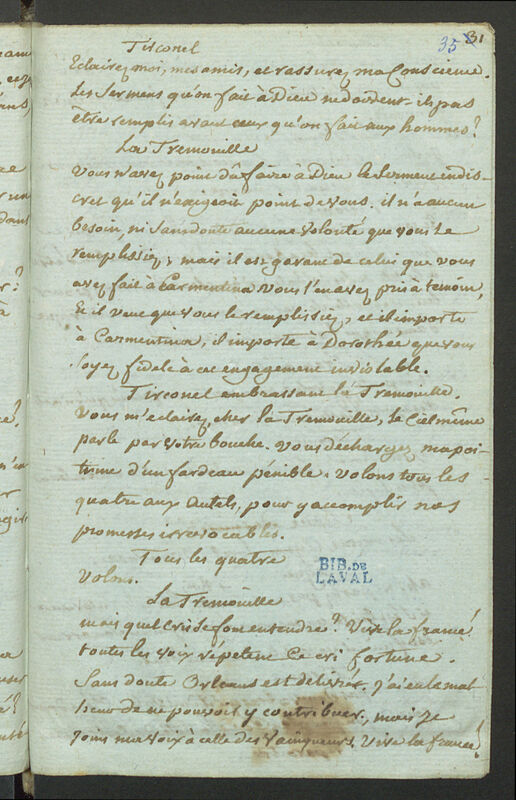 35 31
Tirconel
Eclairez moi, mes amis, et rassurez ma Conscience.
Les Sermens qu'on fait à Dieu ne doivent-ils pas
être remplis avant ceux qu'on fait aux hommes?
La Tremouille
Vous n'avez point dû faire à Dieu le serment indis-
cret qu'il n'exigeoit point de vous. il n'a aucun
besoin, ni sans doute aucune volonté que vous le
remplissiez; mais il est garant de celui que vous
avez fait à Carmentina. Vous l'en avez pris à témoin,
Et il veut que vous le remplissiez, et il importe
à Carmentina, il importe à Dorothée que vous
soyez fidele à cet engagement inviolable.
Tirconel embrassant la Tremouille.
Vous m'eclairez, cher la Tremouille, le Ciel même
parle par votre bouche. Vous déchargez ma poi-
trine d'un fardeau pénible. Volons tous les
quatre aux autels, pour y accomplir nos
promesses irrevocables.
Tous les quatre
Volons.
BIB. DE
LAVAL
La Tremouille
mais quel cri se fait entendre? Vive la france!
toutes les voix répetent ce cri fortuné.
Sans doute Orleans est délivrée. J'ai eu le mal-
heur de ne pouvoir y contribuer, mais je
joins ma voix à celle des vainqueurs. Vive la france!